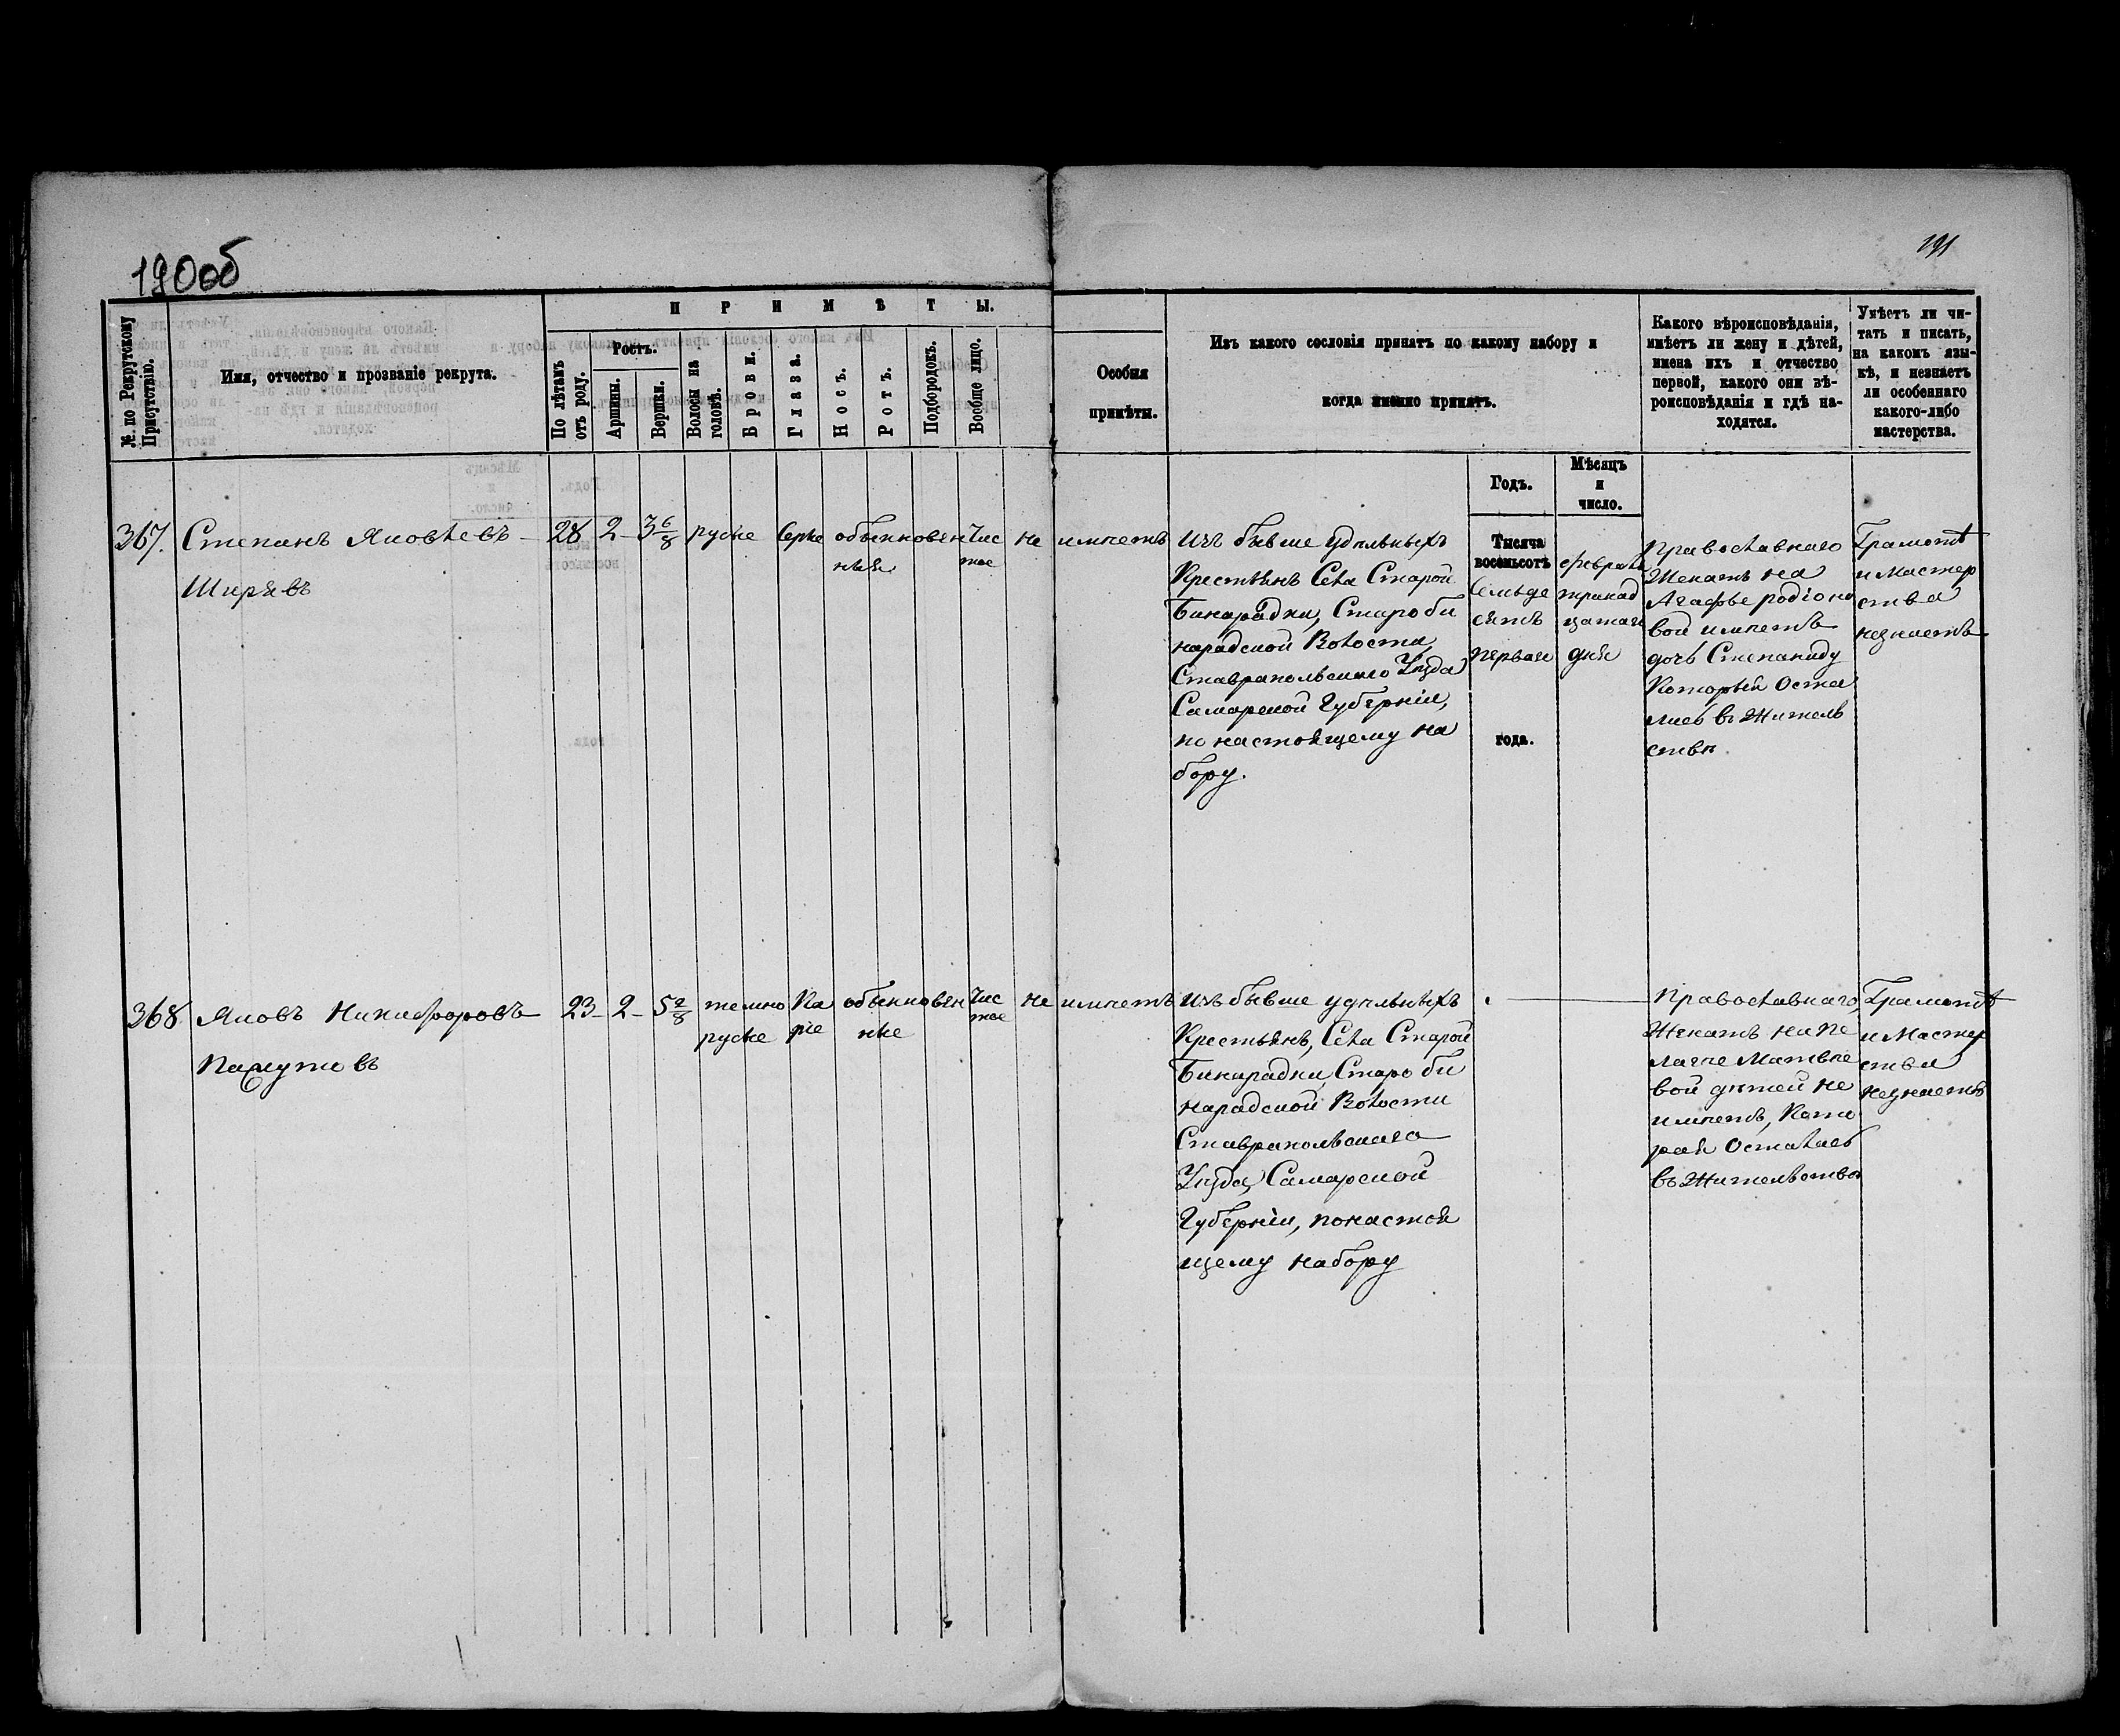 190об
191
№. по Рекрутскому Присутствію.
Имя, отчество и прозваніе рекрута.
ПРИМѢТЫ.
По лѣтамъ отъ роду.
Ростъ.
Аршины.
Вершки.
Волосы на головѣ.
Брови.
Глаза.
Носъ.
Ротъ.
Подбородокъ.
Вообще лицо.
Особыя
примѣты.
Изъ какого сословія принятъ по какому набору и
когда именно принятъ.
Какого вѣроисповѣданія,
имѣетъ ли жену и дѣтей,
имена ихъ и отчество
первой, какого они вѣ-
роисповѣданія и гдѣ на-
ходятся.
Умѣетъ ли чи-
тать и писать,
на какомъ язы-
кѣ, и незнаетъ
ли особеннаго
какого-либо
мастерства.
Годъ.
Мѣсяцъ
и
число.
367.
Степанъ Яковлевъ -
Ширяевъ
28
2 -
3 6/8
русые
Серые
обыкновен
ныя
Чис
тое
не имѣетъ
Изъ бывше удѣльныхъ
Крестьянъ Села Старой
Бинарадки, Староби
нарадской Волости,
Ставрапольскаго Уѣзда
Самарской Губерніи,
по настоящему на
бору.
Тысяча
восемьсотъ
Семьде
сятъ
перваго
года.
февраля
тринад
цатаго
дня
Православнаго
Женатъ на
Агафье родіоно
вой имѣетъ
дочь Степаниду
Которыя Оста
лись въ Житель
ствѣ.
Грамотѣ
и Мастер
ства
незнаетъ
368
Яковъ Никифоровъ
23
2 -
5 2/8
темно
русые
Ка
ріе
обыкновен
ные
Чис
тое
не имѣетъ
Изъ бывше удѣльныхъ
Крестьянъ, Села Старой
Бинарадки, Староби
нарадской Волости
Ставрапольскаго
Уѣзда, Самарской
Губерніи, по настоя
щему набору
Православнаго,
Женатъ на Пе
лагѣе Матвѣе
вой дѣтей не
имѣетъ, Кото
рая Осталась
въ Жительствѣ
Грамотѣ
и Мастер
ства
незнаетъ